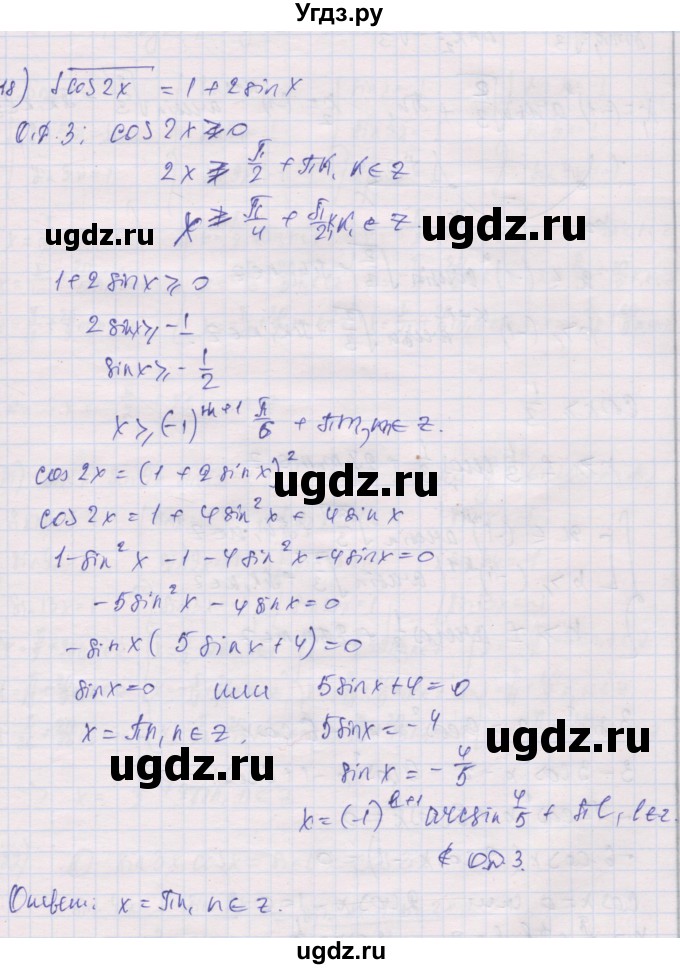 Угдз.ру
18) √cos2x = 1 + 2sinx
О.Д.З: cos2x ≥ 0
2x ≥ π/2 + πk, k ∈ z
x ≥ π/4 + π/2 k, k ∈ z.
ugdz.ru ugdz.ru
1 + 2sinx ≥ 0
2sinx ≥ -1
sinx ≥ -1/2
x ≥ (-1)^(m+1) π/6 + πm, m ∈ z.
cos2x = (1 + 2sinx)²
ugdz.ru
cos2x = 1 + 4sin²x + 4sinx
1 - sin²x - 1 - 4sin²x - 4sinx = 0
-5sin²x - 4sinx = 0
-sinx(5sinx + 4) = 0
sinx = 0 или 5sinx + 4 = 0
x = πn, n ∈ z. 5sinx = -4
ugdz.ru ugdz.ru
sinx = -4/5
x = (-1)^(l+1) arcsin 4/5 + πl, l ∈ z.
∉ ОДЗ.
Ответ: x = πn, n ∈ z.
ugdz.ru